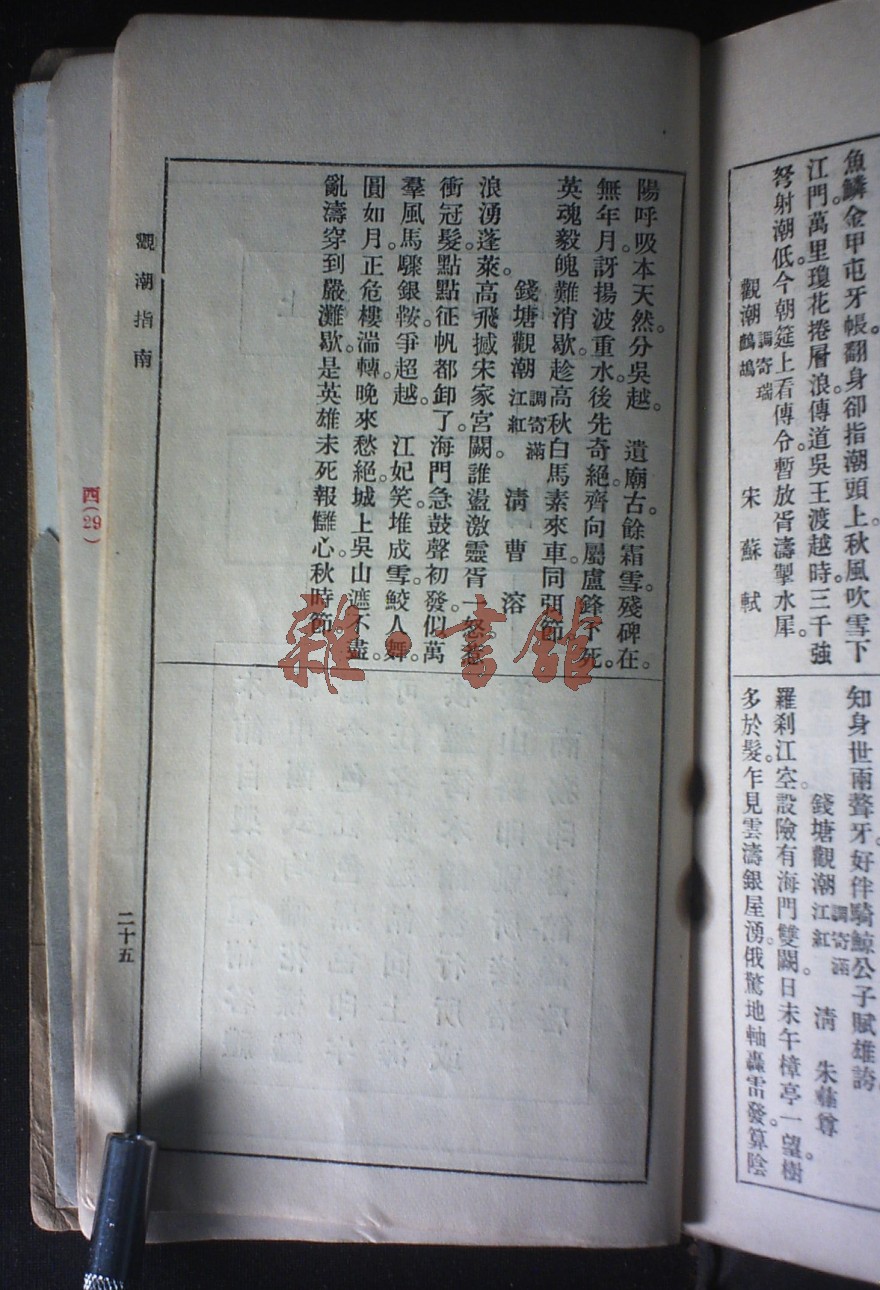 魚鱗金甲屯牙帳。翻身卻指潮頭上。秋風吹雪下
江門。萬里瓊花捲層浪。傳道吳王渡越時。三千強
弩射潮低。今朝筵上看傳令。暫放胥濤掣水犀。
觀潮 調寄瑞鷓鴣 宋 蘇 軾
知身世兩聱牙。好伴騎鯨公子賦雄誇。
錢塘觀潮 調寄滿江紅 清 朱彝尊
羅刹江空。設險有海門雙闕。日未午樟亭一望。樹
多於髮。乍見雲濤銀屋湧。俄驚地軸轟雷發。算陰
陽呼吸本天然。分吳越。 遺廟古。餘霜雪。殘碑在。
無年月。訝揚波重水。後先奇絕。齊向屬盧鋒下死。
英魂毅魄難消歇。趁高秋白馬素來車。同弭節。
錢塘觀潮 調寄滿江紅 清 曹 溶
浪湧蓬萊。高飛撼宋家宮闕。誰盪激靈胥一怒。惹
衝冠髮。點點征帆都卸了。海門急鼓聲初發。似萬
羣風馬驟銀鞍。爭超越。 江妃笑。堆成雪。鮫人舞。
圓如月。正危樓湍轉。晚來愁絕。城上吳山遮不盡。
亂濤穿到嚴灘歇。是英雄未死報讎心。秋時節。
觀潮指南
二十五
西(29)
雜·書館